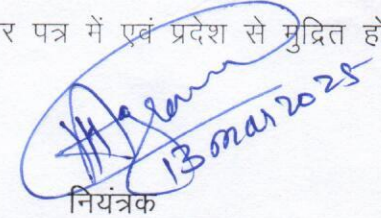 र पत्र में एवं प्रदेश से मुद्रित हो
13 mar 2025
नियंत्रक